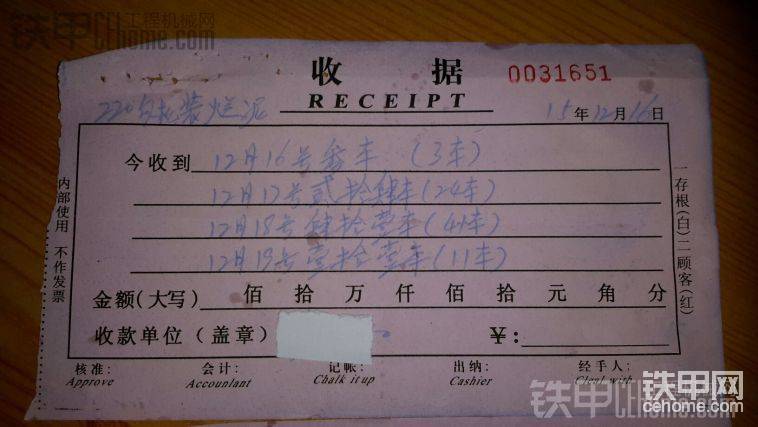 铁甲 工程机械网
cehome.com
收 据 0031651
RECEIPT
220 装烂泥 15年12月16日
今收到 12月16号叁车(3车)
12月17号贰拾肆车(24车)
12月18号肆拾壹车(41车)
12月19号壹拾壹车(11车)
金额(大写) 佰 拾 万 仟 佰 拾 元 角 分
收款单位(盖章) ¥:
核准: 会计: 记帐: 出纳: 经手人:
Approve Accountant Chalk it up Cashier Cleal with
内部使用 不作发票
一存根(白)二顾客(红)
铁甲网
cehome.com